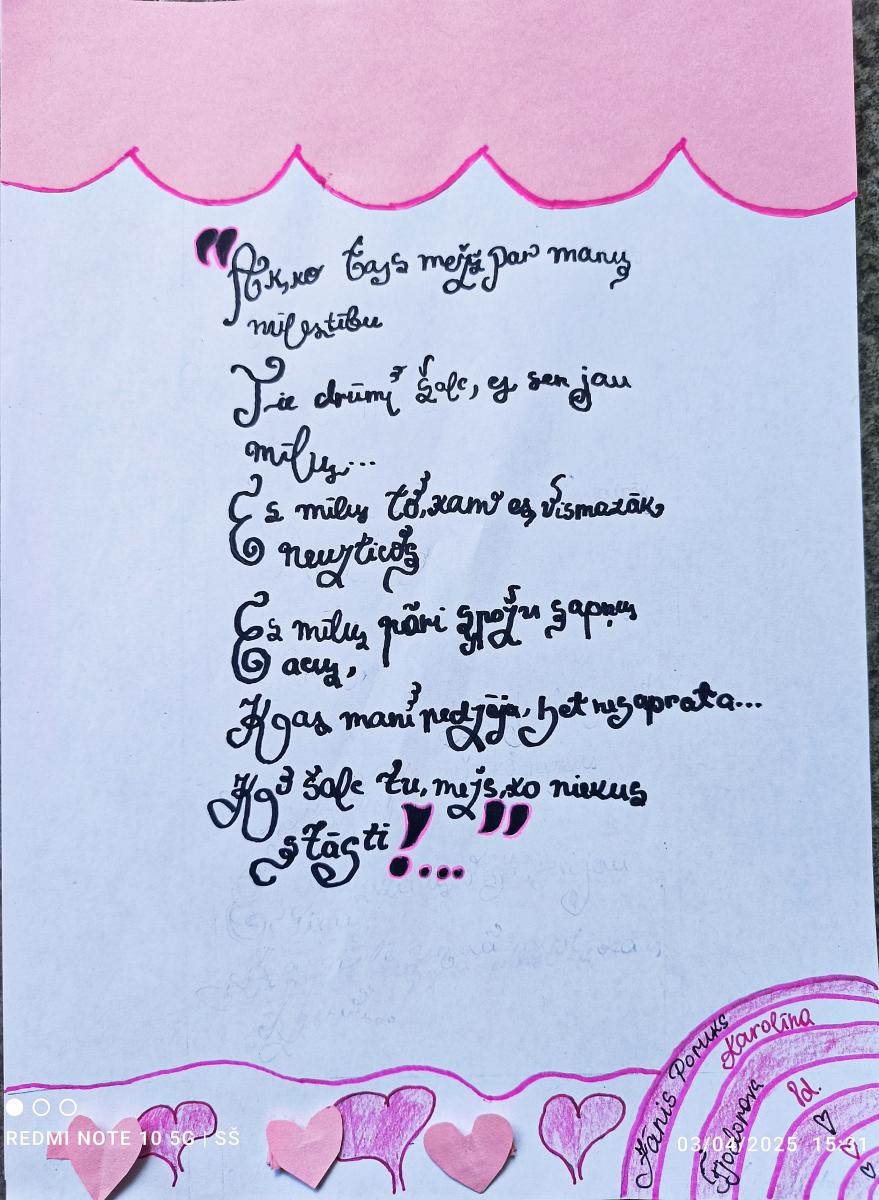 "Ak, ko tas mežs par manu
mīlestību
Tie drūmi šalc, es sen jau
mīlu...
Es mīlu to, kam es vismazāk
neuzticos
Es mīlu pāri spožu sapņu
acu,
Kas mani pedzēja, bet nesaprata...
Ko šalc tu, mežs, ko niekus
stāsti!..."
Janis Poruks
Karolīna
Fjodorova
1d.
REDMI NOTE 10 5G | SŠ
03/04/2025 15:31